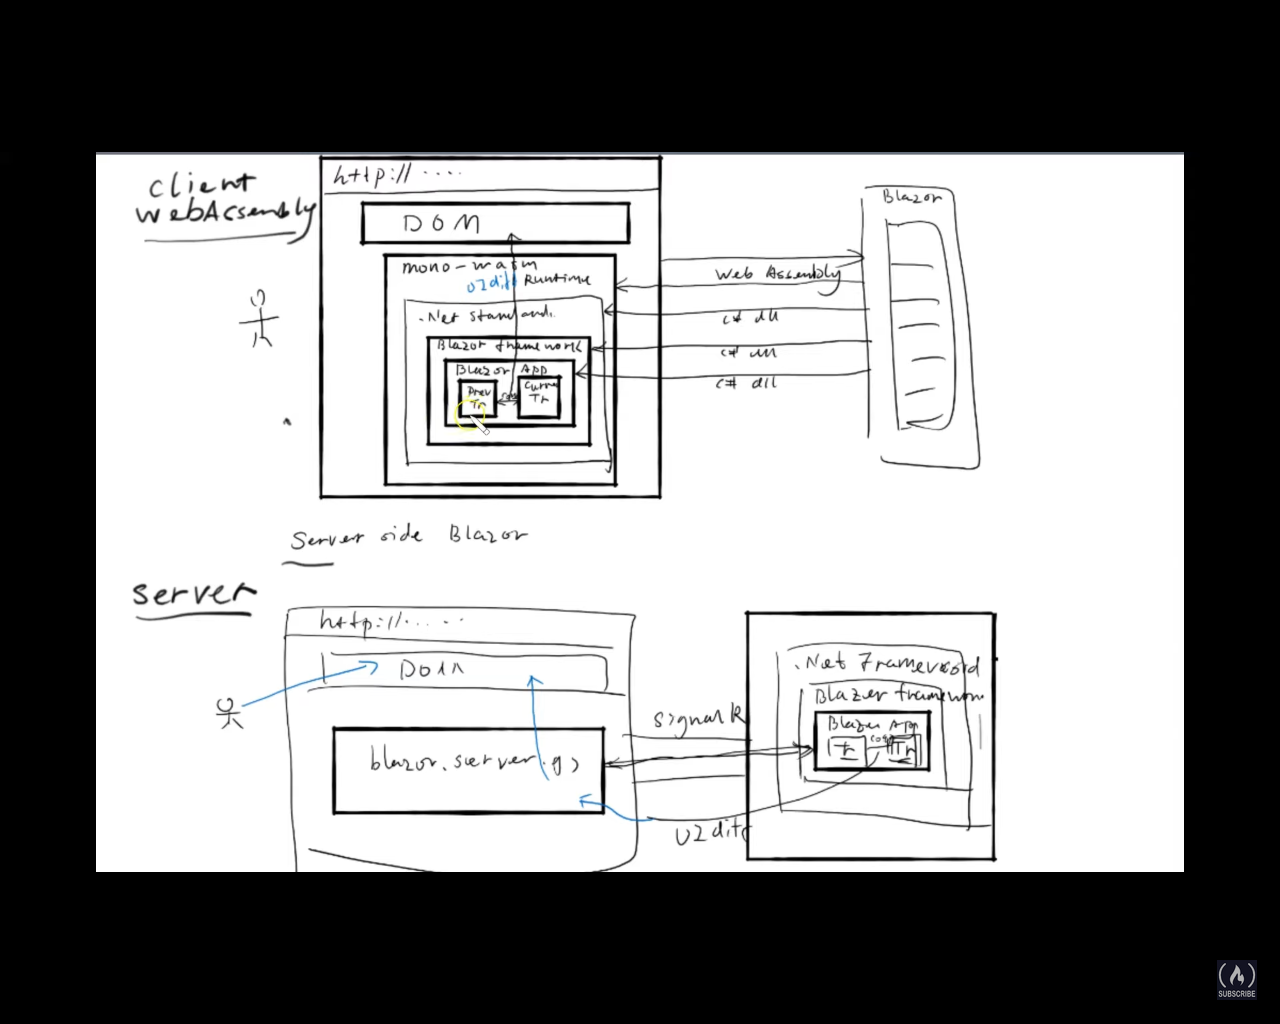 client
WebAssembly
http:// ....
DOM
mono-wasm
UI diff Runtime
.Net standard.
Blazor framework
Blazor App
Prev
Tr
Current
Tr
Blazor
Web Assembly
c# dll
c# dll
c# dll
Server side Blazor
server
http://......
DOM
blazor.server.js
signalR
UI diff
.Net Frameword
Blazer framework
Blazer App
Tr
Tr
SUBSCRIBE